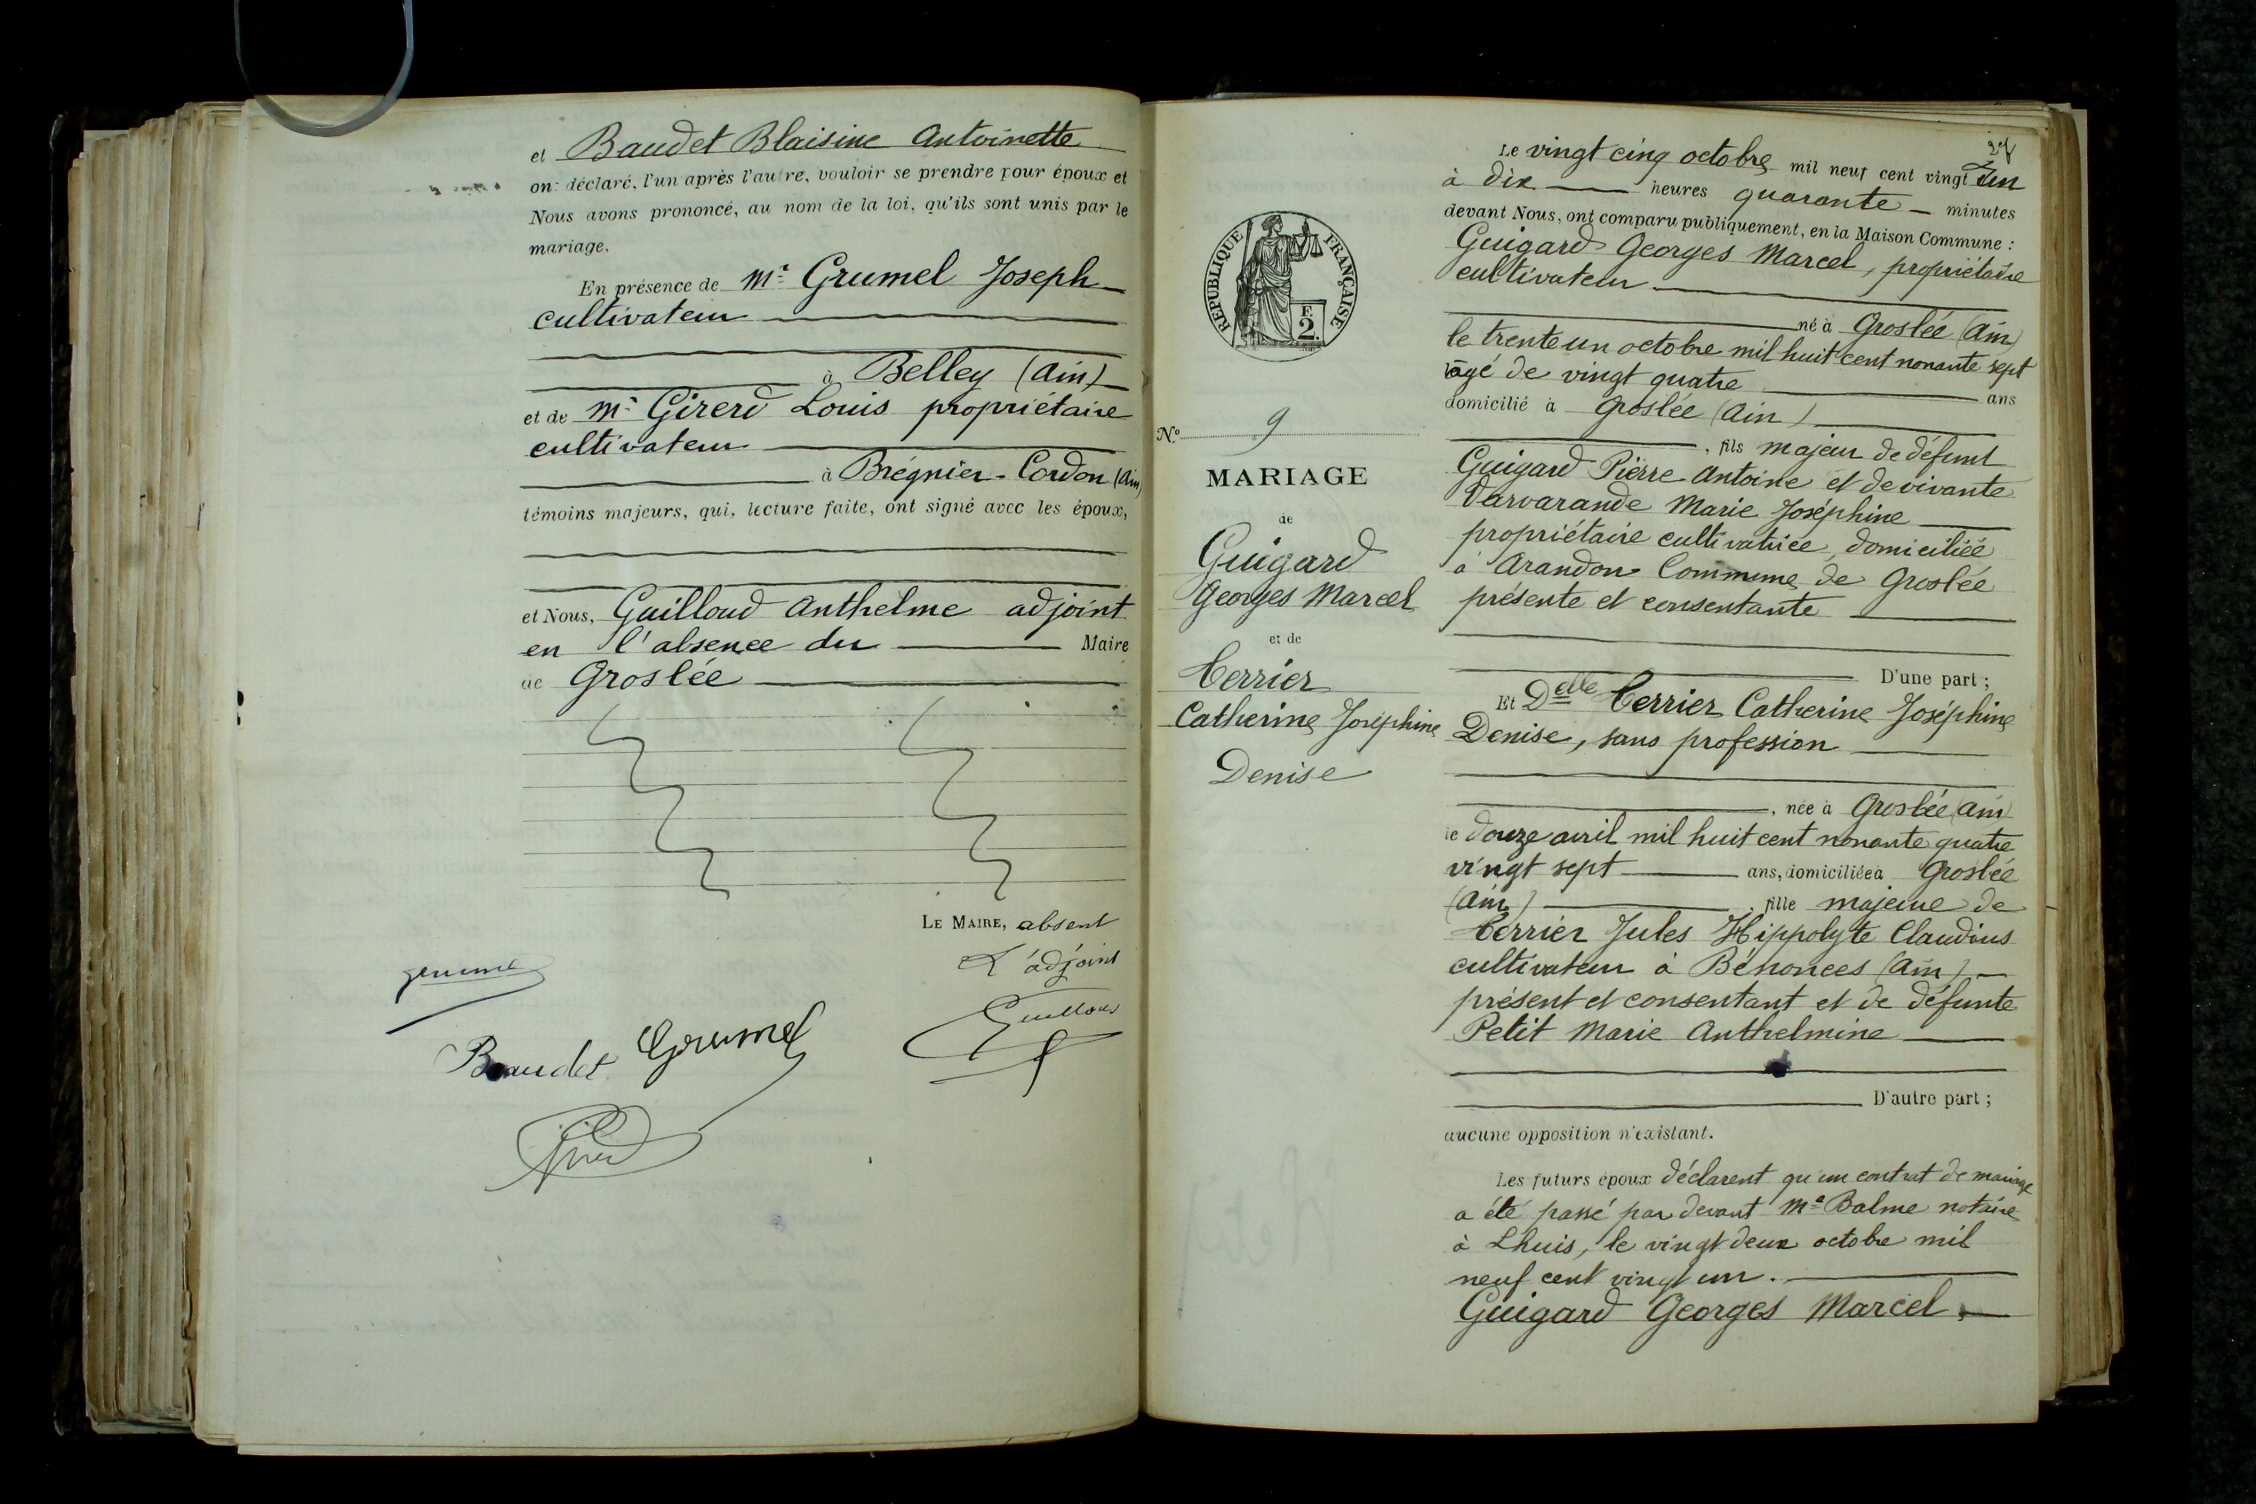 et Baudet Blaisine Antoinette
ont déclaré, l'un après l'autre, vouloir se prendre pour époux et
Nous avons prononcé, au nom de la loi, qu'ils sont unis par le
mariage.
En présence de Mr Grumel Joseph
cultivateur
à Belley (Ain)
et de Mr Girerd Louis propriétaire
cultivateur
à Brégnier-Cordon (Ain)
témoins majeurs, qui, lecture faite, ont signé avec les époux,
et Nous, Guilloud Anthelme adjoint
en l'absence du Maire
de Groslée
LE MAIRE, absent
L'adjoint
Guilloud
Grumel
Baudet Grumel
Girerd
RÉPUBLIQUE FRANÇAISE
F.
2.
No 9
MARIAGE
de
Guigard
Georges Marcel
et de
Terrier
Catherine Joséphine
Denise
Le vingt cinq octobre mil neuf cent vingt un
à dix heures quarante minutes
devant Nous, ont comparu publiquement, en la Maison Commune :
Guigard Georges Marcel, propriétaire
cultivateur
né à Groslée (Ain)
le trente un octobre mil huit cent nonante sept
âgé de vingt quatre ans
domicilié à Groslée (Ain)
, fils majeur de défunt
Guigard Pierre Antoine et de vivante
Varvarande Marie Joséphine
propriétaire cultivatrice, domiciliée
à Arandon Commune de Groslée
présente et consentante
D'une part ;
Et Delle Terrier Catherine Joséphine
Denise, sans profession
, née à Groslée (Ain)
le douze avril mil huit cent nonante quatre
vingt sept ans, domiciliée à Groslée
(Ain) , fille majeure de
Terrier Jules Hippolyte Claudius
cultivateur à Bénonces (Ain)
présent et consentant et de défunte
Petit Marie Anthelmine
D'autre part ;
aucune opposition n'existant.
Les futurs époux déclarent qu'un contrat de mariage
a été passé par devant Me Balme notaire
à Lhuis, le vingt deux octobre mil
neuf cent vingt un.
Guigard Georges Marcel